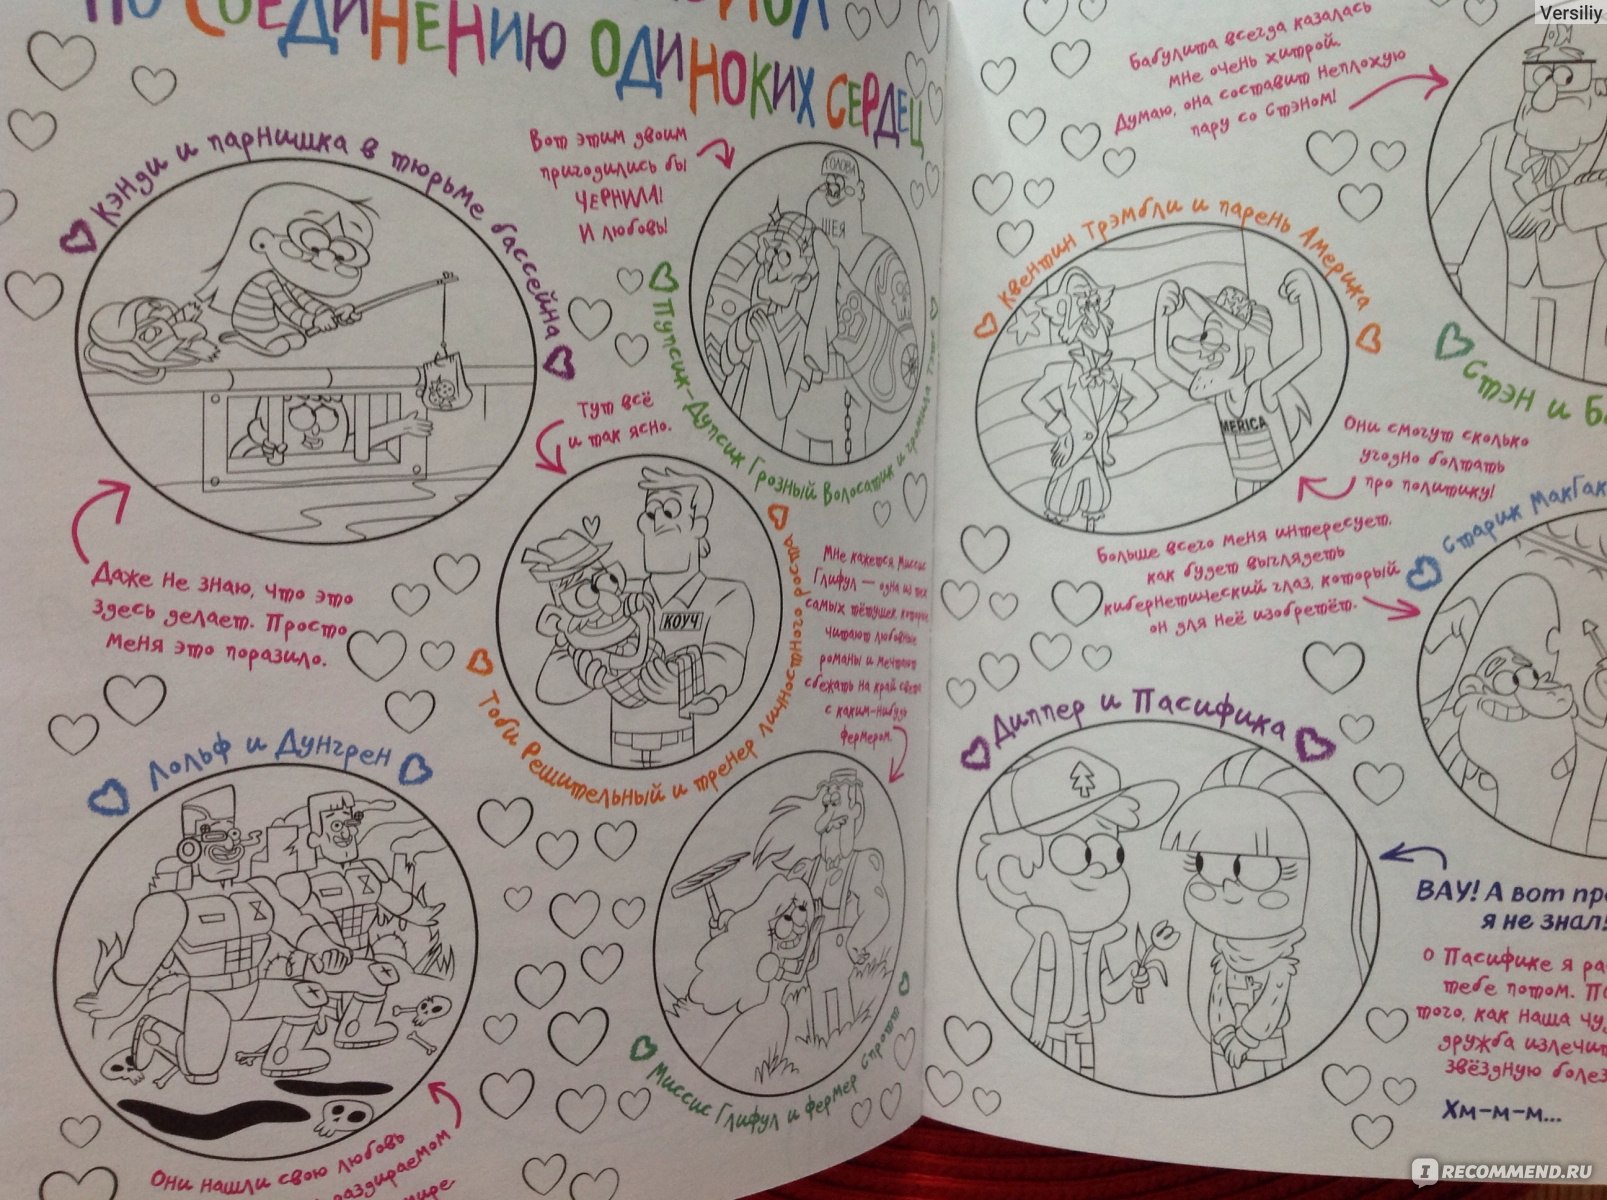 ПО СОЕДИНЕНИЮ ОДИНОКИХ СЕРДЕЦ
Кэнди и парнишка в тюрьме бассейна
Даже не знаю, что это
здесь делает. Просто
меня это поразило.
Вот этим двоим
пригодились бы
ЧЕРНИЛА!
И любовь!
ГОЛОВА
ШЕЯ
Пупсик-Дупсик Грозный Волосатик и громила
Тут всё
и так ясно.
КОУЧ
Тоби Решительный и тренер личностного роста
Мне кажется Миссис
Глифул — одна из тех
самых тётушек, которые
читают любовные
романы и мечтают
сбежать на край света
с каким-нибудь
фермером.
Миссис Глифул и фермер Спротт
Лольф и Дунгрен
Они нашли свою любовь
раздираемом
мире.
Versiliy
Бабулита всегда казалась
мне очень хитрой.
Думаю, она составит неплохую
пару со Стэном!
Стэн и
Квентин Трэмбли и парень Америка
MERICA
Они смогут сколько
угодно болтать
про политику!
Старик МакГак
Больше всего меня интересует,
как будет выглядеть
кибернетический глаз, который
он для неё изобретёт.
Диппер и Пасифика
ВАУ! А вот
я не знал!
О Пасифике я
тебе потом.
того, как наша
дружба
звёздную
Хм-м-м...
IRECOMMEND.RU